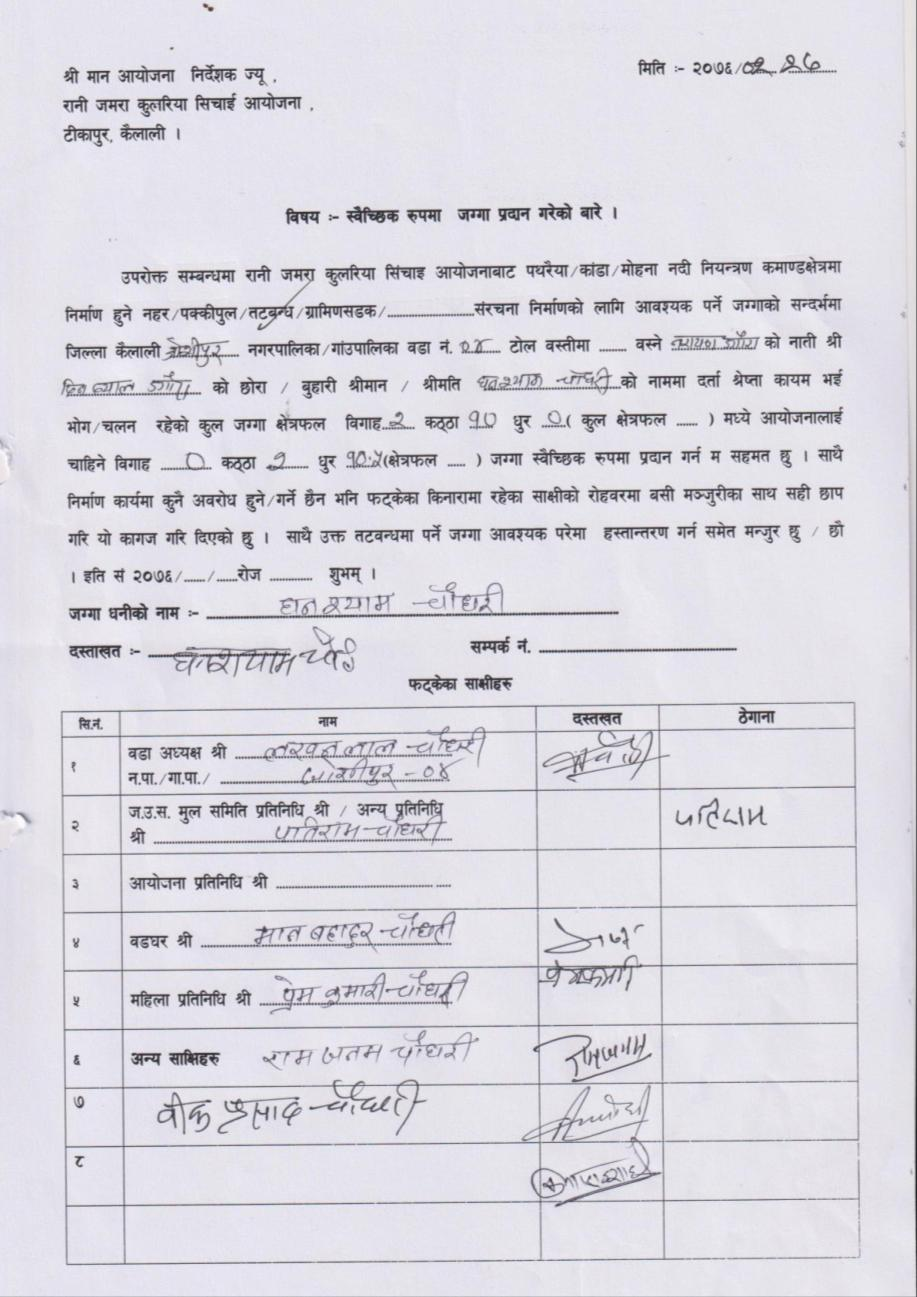 श्री मान आयोजना निर्देशक ज्यू ,
मिति :- २०७६/०२ २६
रानी जमरा कुलरिया सिचाई आयोजना ,
टीकापुर, कैलाली ।
विषय :- स्वैच्छिक रुपमा जग्गा प्रदान गरेको बारे ।
उपरोक्त सम्बन्धमा रानी जमरा कुलरिया सिंचाइ आयोजनाबाट पथरैया/कांडा/मोहना नदी नियन्त्रण कमाण्डक्षेत्रमा
निर्माण हुने नहर/पक्कीपुल/तटबन्ध/ग्रामिणसडक/........................संरचना निर्माणको लागि आवश्यक पर्ने जग्गाको सन्दर्भमा
जिल्ला कैलाली जोशीपुर नगरपालिका/गांउपालिका वडा नं. ०४ टोल वस्तीमा ........ वस्ने को नाती श्री
को छोरा / बुहारी श्रीमान / श्रीमति घनश्याम चौधरी को नाममा दर्ता श्रेष्ता कायम भई
भोग/चलन रहेको कुल जग्गा क्षेत्रफल विगाह २ कठ्ठा १० धुर ०( कुल क्षेत्रफल ...... ) मध्ये आयोजनालाई
चाहिने विगाह ० कठ्ठा २ धुर १०.५(क्षेत्रफल ..... ) जग्गा स्वैच्छिक रुपमा प्रदान गर्न म सहमत छु । साथै
निर्माण कार्यमा कुनै अवरोध हुने/गर्ने छैन भनि फट्केका किनारामा रहेका साक्षीको रोहवरमा बसी मञ्जुरीका साथ सही छाप
गरि यो कागज गरि दिएको छु । साथै उक्त तटवन्धमा पर्ने जग्गा आवश्यक परेमा हस्तान्तरण गर्न समेत मन्जुर छु / छौ
। इति सं २०७६/....../......रोज ............ शुभम् ।
जग्गा धनीको नाम :- घनश्याम चौधरी
दस्ताखत :- घनश्याम
सम्पर्क नं. ........................
फट्केका साक्षीहरु
सि.नं. नाम दस्तखत ठेगाना
१ वडा अध्यक्ष श्री लखनलाल चौधरी
न.पा./गा.पा./ जोशीपुर - ०४
२ ज.उ.स. मुल समिति प्रतिनिधि श्री / अन्य प्रतिनिधि
श्री पतिराम चौधरी पतिराम
३ आयोजना प्रतिनिधि श्री ........................
४ वडघर श्री मान बहादुर चौधरी
५ महिला प्रतिनिधि श्री प्रेम कुमारी चौधरी प्रेमकुमारी
६ अन्य साक्षिहरु राम जनम चौधरी रामजनम
७ प्रसाद चौधरी
८